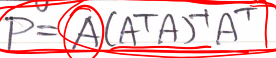 P = A(AᵀA)⁻¹Aᵀ